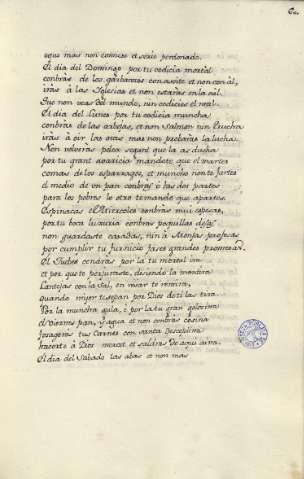 que mas non comiese et serie perdonado.
El dia del Domingo por tu codicia mortal
conbrás de los garbanzos con aseite et non con ál,
irás à las Iglesias et non estarás en la cál
Que non veas del mundo, nin codicies el real.
El dia del Lunes por tu codicia muncha
conbras de las arbejas, et non salmon nin trucha
irás à oir las oras, mas non probarás la lucha:
Non volverás pelea segunt que la as ducha
por tu grant avaricia mandote que el martes
comas de los esparragos, et muncho non te fartes
el medio de un pan conbras o las dos partes
para los pobres lo otro te mando que apartes.
Espinacas el Miercoles conbras mui espesas,
por tu loca luxuria conbras poquillas desas
non guardaste casadas, nin à Monjas profesas
por cumplir tu fornicio fases grandes promesas.
El Jueves cenarás por la tu mortal ira
et por que te perjuraste, disiendo la mentira
Lantejas con la sal, en rezar te remira,
quando mejor te sepan por Dios dotí las tira.
Por la muncha gula, é por la tu gran golosina
el Viernes pan, y agua et non conbras cosina
fosagarás tus carnes con santa Desceplina
haverte á Dios mercet et saldras de aqui aina.
El dia del Sabado las abas et non mas